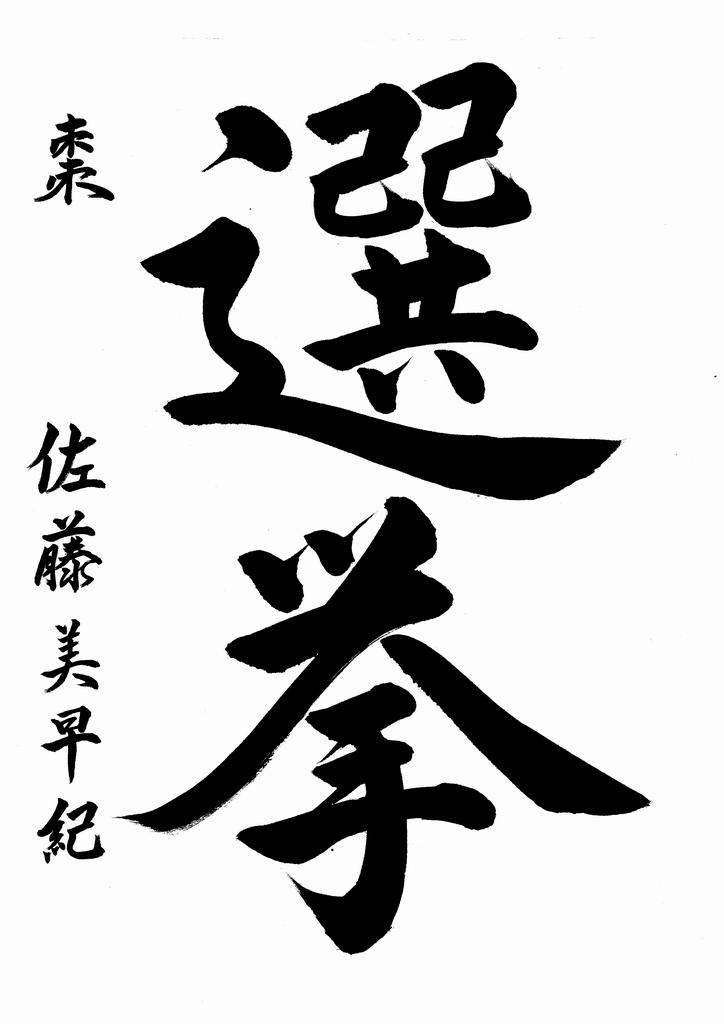 選挙
棗 佐藤美早紀